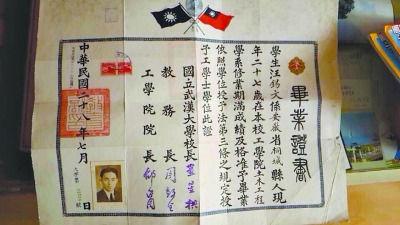 畢業證書
學生汪錫文係安徽省桐城縣人現
年二十七歲在本校工學院土木工程
學系修業期滿成績及格准予畢業
依照學位授予法第三條之規定授
予工學士學位此證
國立武漢大學校長王星拱
教務長
工學院院長
中華民國二十八年七月日